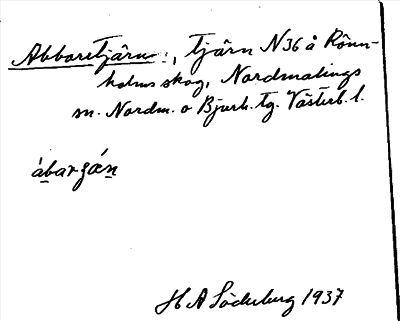 Abborrtjärn:, tjärn N36 å Rönn-
holms skog, Nordmalings
sn. Nordm. o Bjurh. tg. Västerb. l.
ábargǽn
H A Söderberg 1937